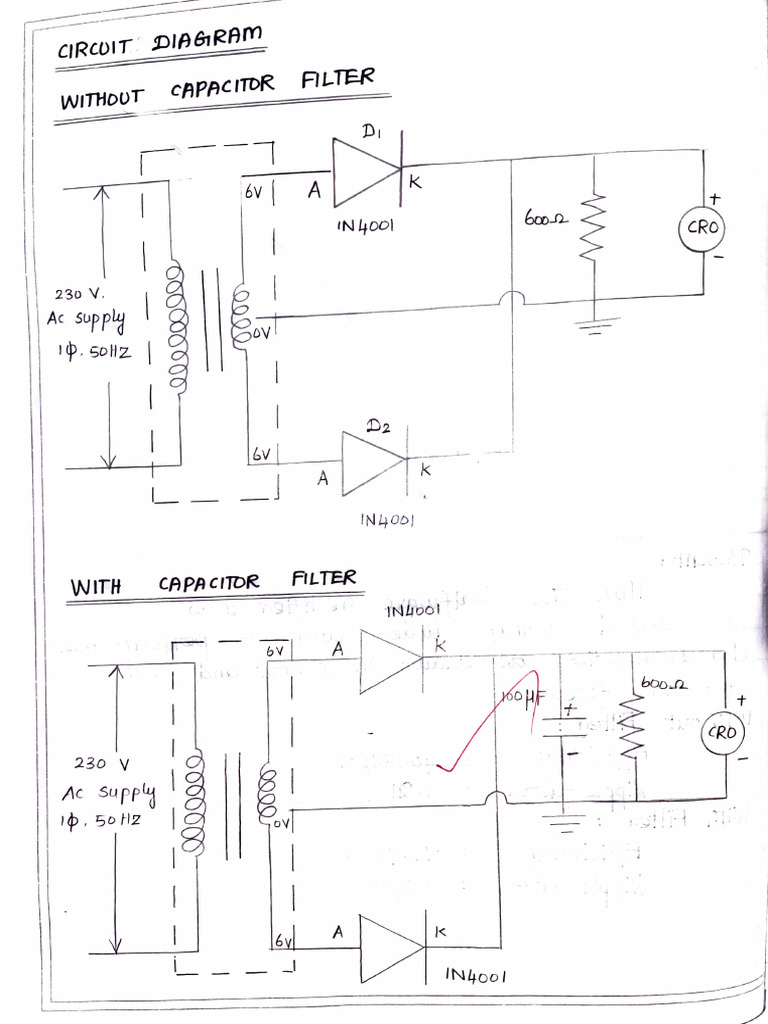 CIRCUIT DIAGRAM
WITHOUT CAPACITOR FILTER
D1
6V
A
K
IN4001
600Ω
+
CRO
-
230 V.
Ac supply
1ϕ. 50HZ
0V
D2
6V
A
K
IN4001
WITH CAPACITOR FILTER
IN4001
6V
A
K
100μF
+
-
600Ω
+
CRO
-
230 V
Ac supply
1ϕ. 50HZ
0V
6V
A
K
IN4001